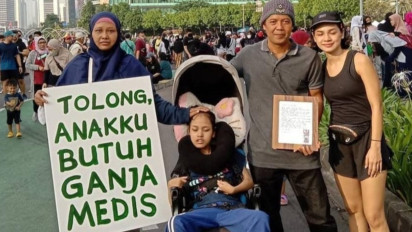 TOLONG,
ANAKKU
BUTUH
GANJA
MEDIS